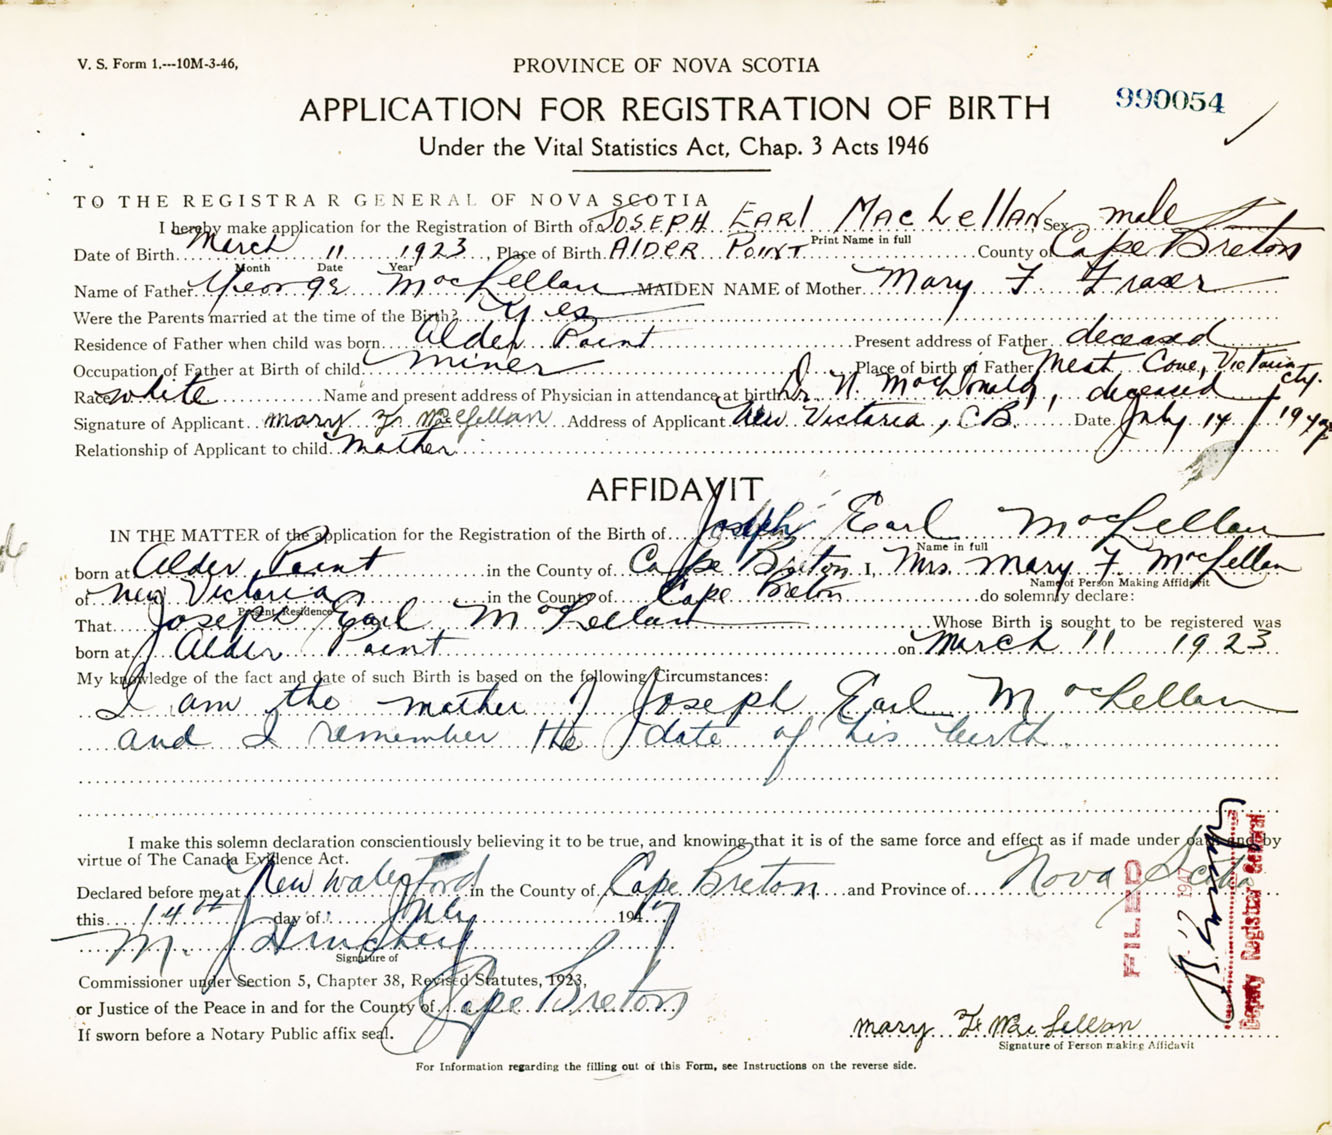 V. S. Form 1.---10M-3-46,
PROVINCE OF NOVA SCOTIA
APPLICATION FOR REGISTRATION OF BIRTH
990054
Under the Vital Statistics Act, Chap. 3 Acts 1946
TO THE REGISTRAR GENERAL OF NOVA SCOTIA
I hereby make application for the Registration of Birth of JOSEPH EARl MacLellan Sex male
Print Name in full
Date of Birth March 11 1923, Place of Birth AlDER POINT County of Cape Breton
Month Date Year
Name of Father George MacLellan MAIDEN NAME of Mother Mary F Fraser
Were the Parents married at the time of the Birth? Yes
Residence of Father when child was born Alder Point Present address of Father deceased
Occupation of Father at Birth of child Miner Place of birth of Father Meat Cove, Victoria Cty.
Race white Name and present address of Physician in attendance at birth Dr. N. MacDonald, deceased
Signature of Applicant Mary F. MacLellan Address of Applicant New Victoria, C B. Date July 14 1947
Relationship of Applicant to child Mother
AFFIDAVIT
IN THE MATTER of the application for the Registration of the Birth of Joseph Earl MacLellan
Name in full
born at Alder Point in the County of Cape Breton I, Mrs. Mary F. MacLellan
Name of Person Making Affidavit
of New Victoria in the County of Cape Breton do solemnly declare:
Present Residence
That Joseph Earl MacLellan Whose Birth is sought to be registered was
born at Alder Point on March 11 1923
My knowledge of the fact and date of such Birth is based on the following Circumstances:
I am the mother of Joseph Earl MacLellan
and I remember the date of his birth.
I make this solemn declaration conscientiously believing it to be true, and knowing that it is of the same force and effect as if made under oath and by
virtue of The Canada Evidence Act.
Declared before me at New Waterford in the County of Cape Breton and Province of Nova Scotia
this 14th day of July 1947
M. J. Hinchey
Signature of
Commissioner under Section 5, Chapter 38, Revised Statutes, 1923,
or Justice of the Peace in and for the County of Cape Breton
If sworn before a Notary Public affix seal.
Mary F. MacLellan
Signature of Person making Affidavit
For Information regarding the filling out of this Form, see Instructions on the reverse side.
FILED
1947
Deputy Registrar General